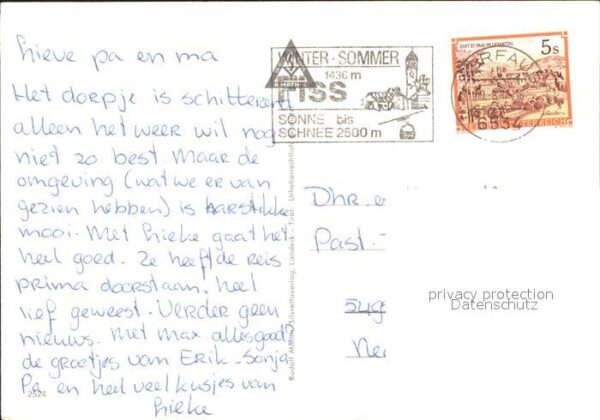 Lieve pa en ma
Het dorpje is schitterend
alleen het weer wil nog
niet zo best. Maar de
omgeving (wat we er van
gezien hebben) is harstikke
mooi. Met Lieke gaat het
heel goed. Ze heeft de reis
prima doorstaan. heel
lief geweest. Verder geen
nieuws. Met Max alles goed?
de groetjes van Erik-Sonja
Pa en heel veel kusjes van
Lieke
2324
WINTER-SOMMER
1436 m
FISS
SONNE bis
SCHNEE 2500 m
STIFT ST. PAUL IM LAVANTTAL
5s
6534
Rudolf Mathis, Silvrettaverlag, Landeck - Tirol Urheberrechtlich
Dhr. e
Past.
Ne
privacy protection
Datenschutz